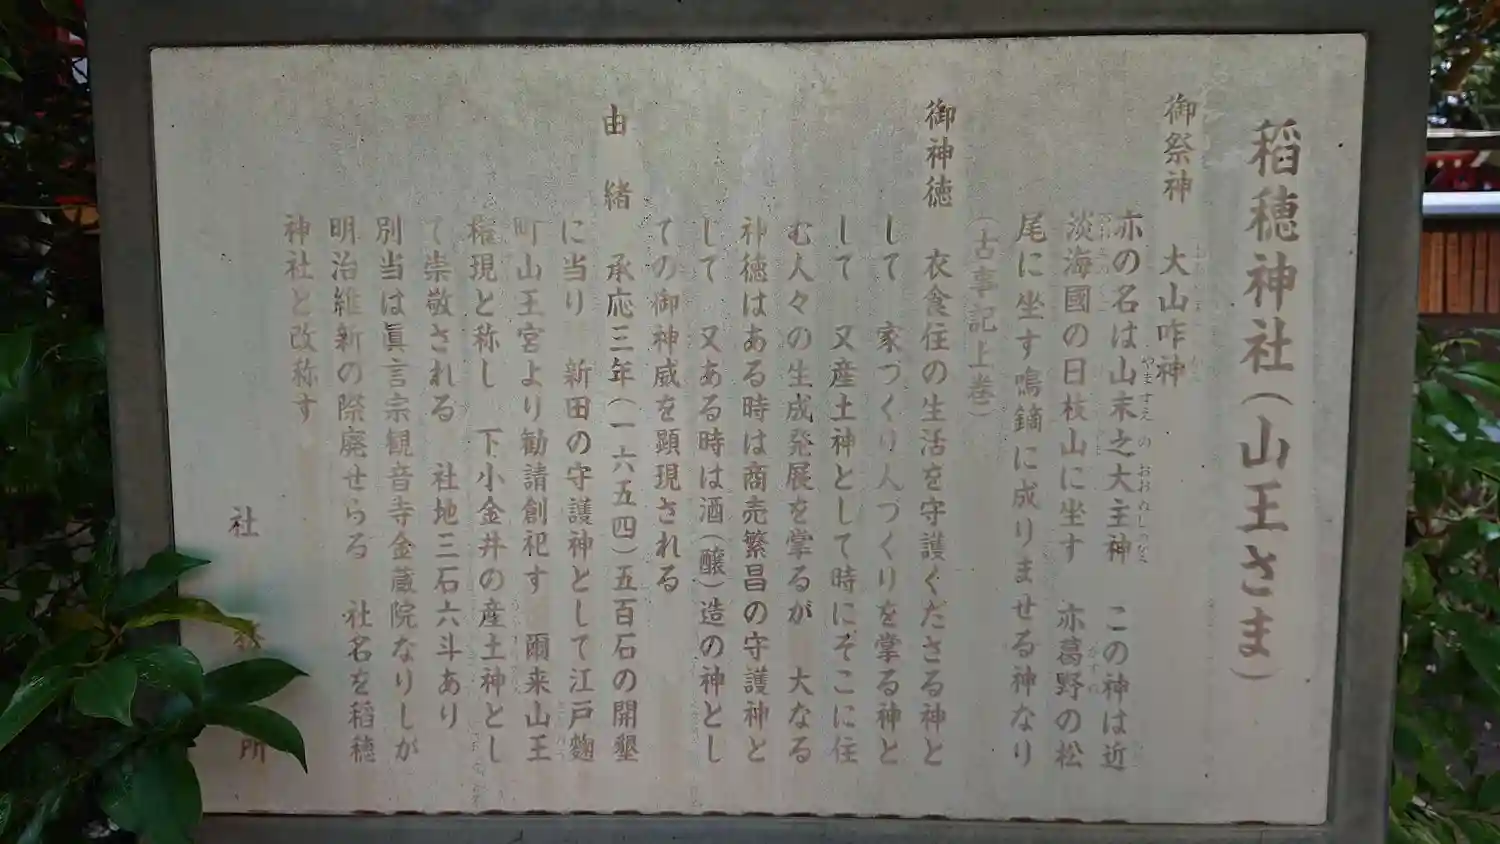 稲穂神社(山王さま)
御祭神 大山咋神
亦の名は山末之大主神 この神は近
やますえ の おおぬしのかみ
淡海國の日枝山に坐す 亦葛野の松
尾に坐す鳴鏑に成りませる神なり
(古事記上巻)
御神徳 衣食住の生活を守護くださる神と
して 家づくり人づくりを掌る神と
して 又産土神として時にそこに住
む人々の生成発展を掌るが 大なる
神徳はある時は商売繁昌の守護神と
して 又ある時は酒(醸)造の神とし
ての御神威を顕現される
由緒 承応三年(一六五四)五百石の開墾
に当り 新田の守護神として江戸麴
町山王宮より勧請創祀す 爾来山王
権現と称し 下小金井の産土神とし
て崇敬される 社地三石六斗あり
別当は眞言宗観音寺金蔵院なりしが
明治維新の際廃せらる 社名を稲穂
神社と改称す
社務所